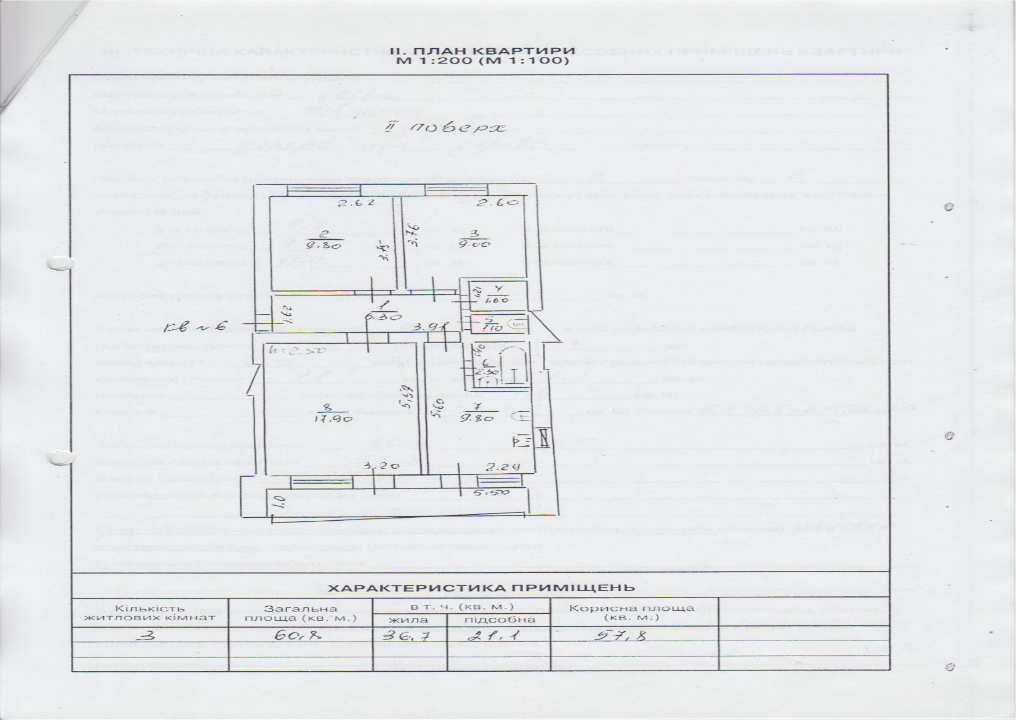 II. ПЛАН КВАРТИРИ
М 1:200 (М 1:100)
II поверх
2.62
2.60
2
9.80
3.75
3.76
3
9.00
4
1.60
1.62
1
6.30
3.91
5
1.10
кв №6
h=2.50
1.40
6
2.30
8
17.90
5,59
5.60
7
9.80
3,20
2.29
1,0
5,50
ХАРАКТЕРИСТИКА ПРИМІЩЕНЬ
Кількість житлових кімнат
Загальна площа (кв. м.)
в т. ч. (кв. м.)
жила
підсобна
Корисна площа (кв. м.)
3
60,8
36,7
21,1
57,8